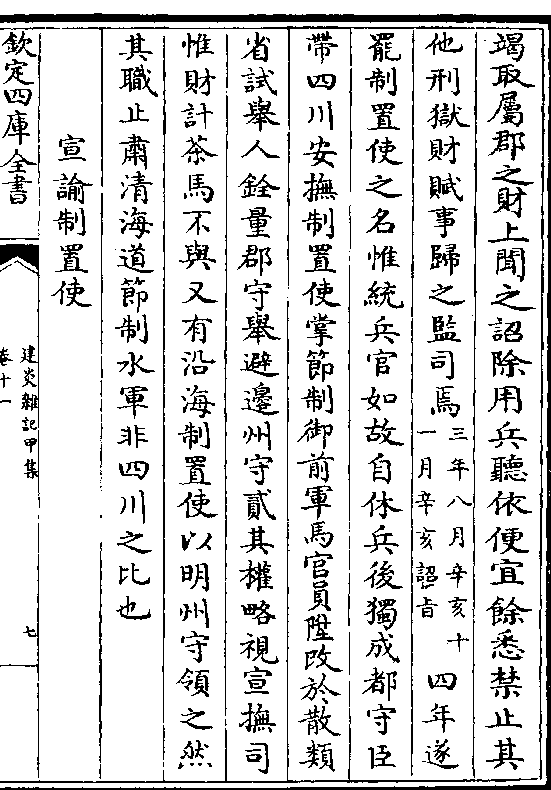 竭取屬郡之財上聞之詔除用兵聽依便宜餘悉禁止其
他刑獄財賦事歸之監司焉三年八月辛亥十一月辛亥詔旨四年遂
罷制置使之名惟統兵官如故自休兵後獨成都守臣
帶四川安撫制置使掌節制御前軍馬官員陞改放散類
省試舉人銓量郡守舉避邊州守貳其權略視宣撫司
惟財計茶馬不與又有沿海制置使以明州守領之然
其職止肅清海道節制水軍非四川之比也
宣諭制置使
欽定四庫全書
建炎雜記甲集
卷十一
七